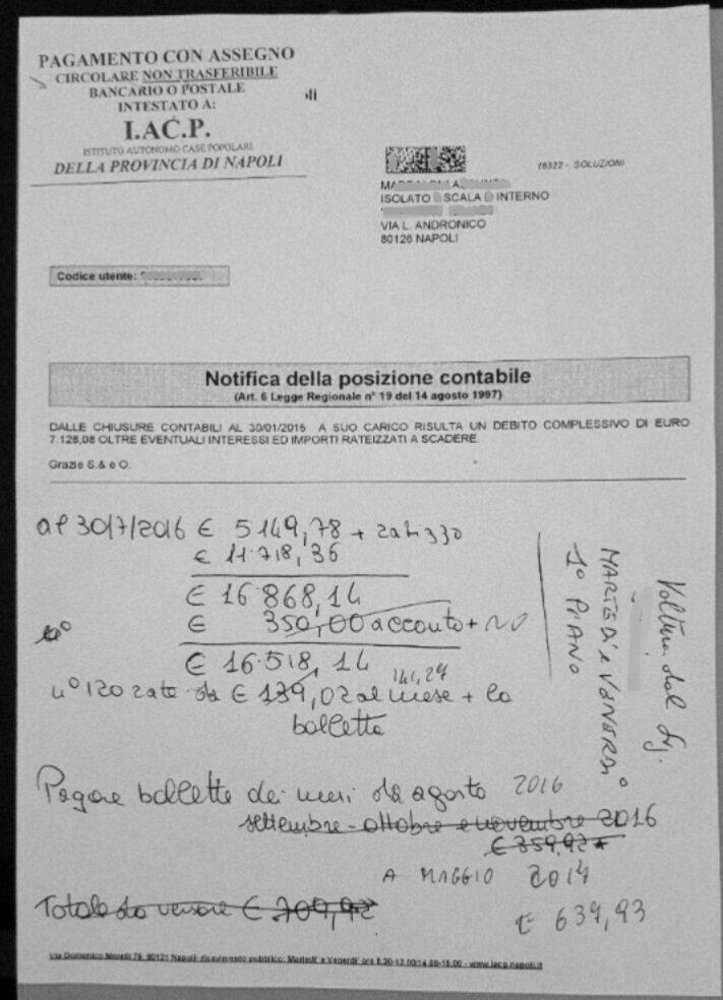 PAGAMENTO CON ASSEGNO
CIRCOLARE NON TRASFERIBILE
BANCARIO O POSTALE
INTESTATO A:
I.AC.P.
ISTITUTO AUTONOMO CASE POPOLARI
DELLA PROVINCIA DI NAPOLI
18322 - SOLUZIONI
ISOLATO SCALA INTERNO
VIA L. ANDRONICO
80126 NAPOLI
Codice utente:
Notifica della posizione contabile
(Art. 6 Legge Regionale n° 19 del 14 agosto 1997)
DALLE CHIUSURE CONTABILI AL 30/01/2015 A SUO CARICO RISULTA UN DEBITO COMPLESSIVO DI EURO
7.128,08 OLTRE EVENTUALI INTERESSI ED IMPORTI RATEIZZATI A SCADERE.
Grazie S.& e O.
al 30/7/2016 € 5149,78 +
€ 11.718,36
€ 16 868,14
€ 350,00 acconto +
€ 16.518,14
141,24
n° 120 rate da € 139,02 al mese + la
bolletta
MARTEDÌ e VENERDÌ
1° PIANO
Voltura dal
Pagare bollette dei mesi da agosto 2016
settembre - ottobre e novembre 2016
€ 359,92
A MAGGIO 2014
Totale da versare € 709,92
€ 639,93
Via Domenico Morelli 75, 80121 Napoli; ricevimento pubblico: Martedi' e Venerdi' ore 8.30-12.00/14.50-15.00 - www.iacp.napoli.it